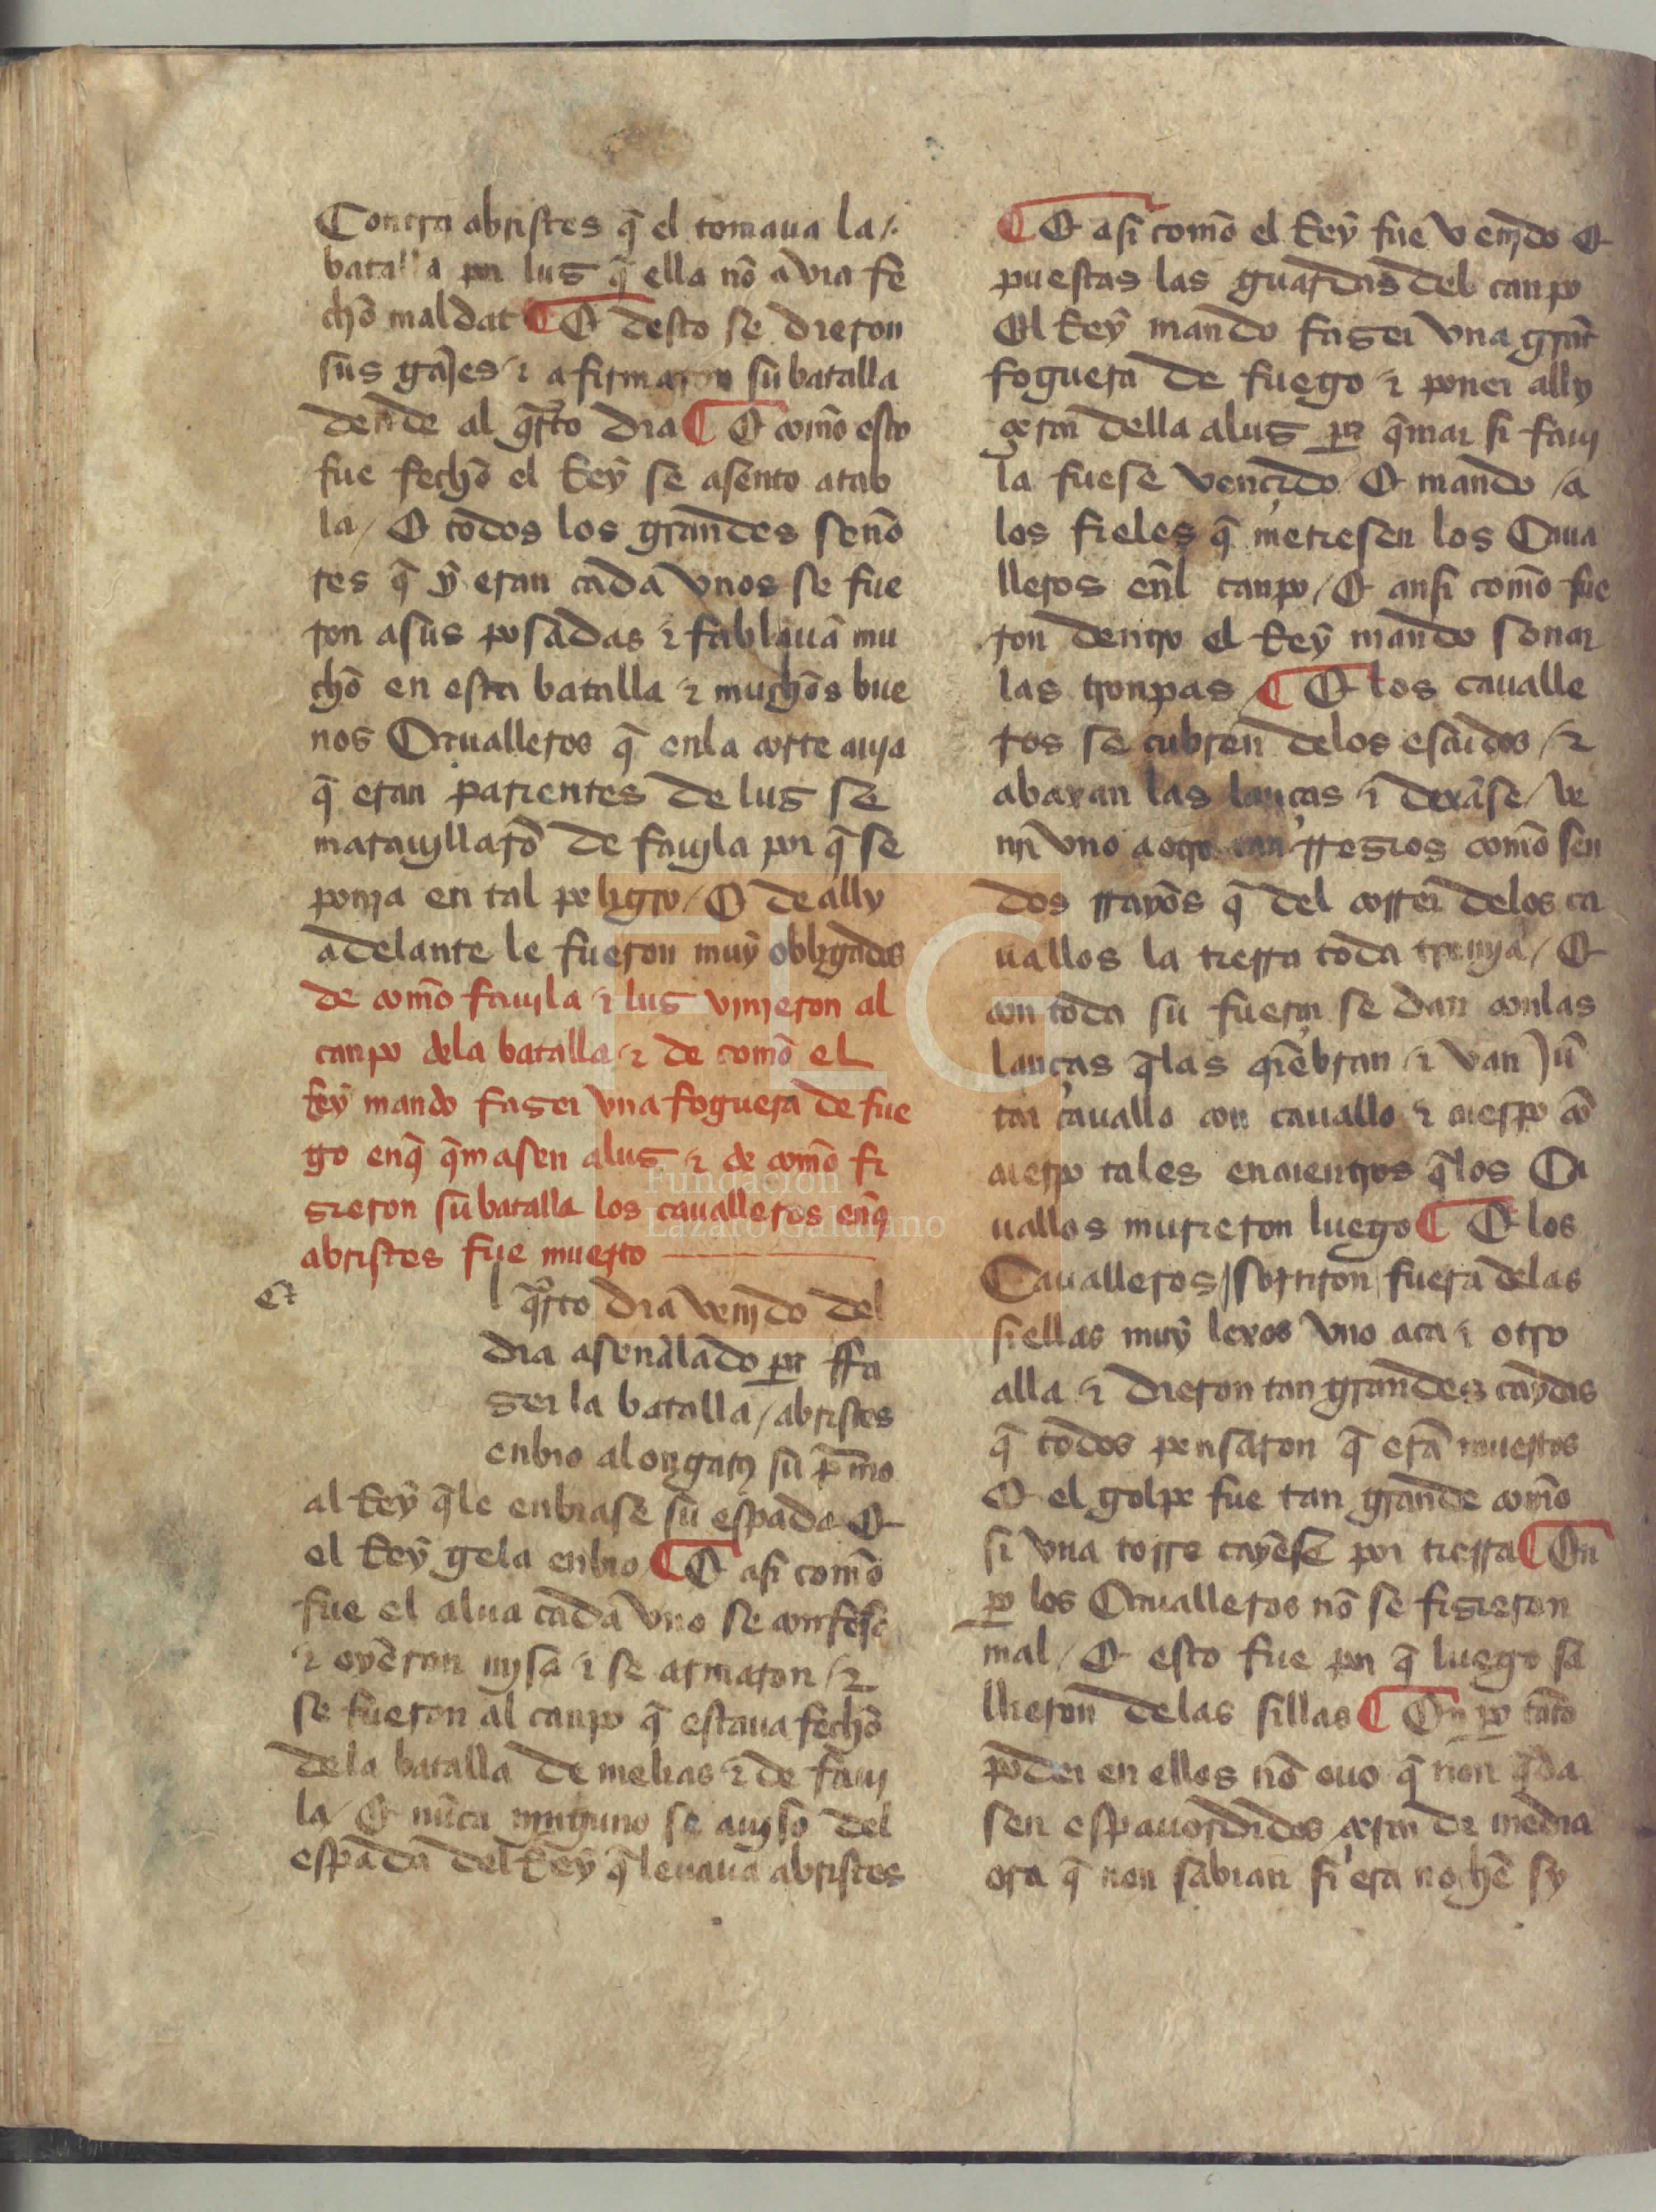 Contra abristes q̃ el tomaua la /.
batalla por lug q̃ ella nõ avia fe
chõ maldat ¶ E desto se dieron
sus gajes ⁊ afirmaron su batalla
dende al q̃rto dia ¶ E comõ esto
fue fechõ el Rey se asento atab
la / E todos los grandes seño
res q̃ ỹ eran cada vnos se fue
ron asus posadas ⁊ fablauã mu
chõ en esta batalla ⁊ muchõs bue
nos Caualleros q̃ enla corte auja
q̃ eran parientes de lug se
marauillarõ de fauila por q̃ se
ponja en tal peligro / E de ally
adelante le fueron muỹ obligados
de comõ fauila ⁊ lug vinieron al
canpo dela batalla ⁊ de comõ el
Reỹ mando faser vna foguera de fue
go enq̃ q̃masen alug ⁊ de comõ fi
sieron su batalla los caualleros enq̃
abristes fue muerto
e⁊
l q̃rto dia venjdo del
dia aseñalado par ffa
ser la batalla / abristes
enbio a su p̃mo
al Reỹ q̃le enbiase su espada E
el Reỹ gela enbio ¶ E asi comõ
fue el alua cada vno se confeso
⁊ oyeron mjsa ⁊ se armaron / ⁊
se fueron al canpo q̃ estaua fechõ
dela batalla de melias ⁊ de faui
la / E nũca njnguno se aujso del
espada del Reỹ q̃ leuaua abristes
¶ E asi comõ el Reỹ fue venjdo E
puestas las guardas del canpo
El Reỹ mando faser vna grãt
foguera de fuego ⁊ poner ally
çerca della alug par q̃mar si faui
la fuese vençido / E mando / a
los fieles q̃ metiesen los Caua
lleros enl canpo / E ansi comõ fue
ron dentro el Reỹ mando sonar
las tronpas / ¶ E los caualle
ros se cubren delos escudos / ⁊
abaxan las lanças ⁊ dexãse / ve
nir vno a otro tan rresios comõ sen
dos rrayõs q̃ del correr delos ca
uallos la tierra toda tremja / E
con toda su fuerça se dan conlas
lanças q̃las q̃ebran ⁊ van jũ
tar cauallo con cauallo ⁊ cuerpo cõ
cuerpo tales encuentros q̃los Ca
uallos murieron luego ¶ E los
Caualleros / sorriron fuera delas
siellas muỹ lexos vno aca ⁊ otro
alla ⁊ dieron tan grandes caydas
q̃ todos pensaron q̃ erã muertos
E el golpe fue tan grande comõ
si vna torre cayese por tierra ¶ En
po los Caualleros nõ se fisieron
mal / E esto fue por q̃ luego sa
llieron delas sillas ¶ En po tãto
poder en ellos nõ ouo q̃ non q̃da
sen espauordidos çerca de media
ora q̃ non sabian si era nochẽ sy
Fundación
Lázaro Galdiano
FLG